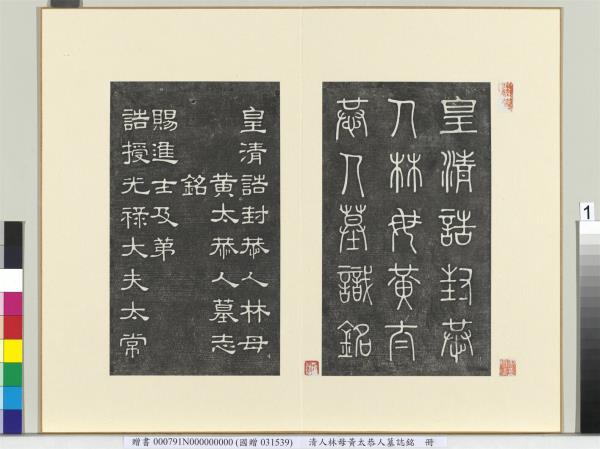 皇清誥封恭
人林母黃太
恭人墓識銘
皇清誥封恭人林母
黃太恭人墓志
銘
賜進士及第
誥授光祿大夫太常
1
贈書 000791N000000000 (國贈 031539) 清人林母黃太恭人墓誌銘 冊